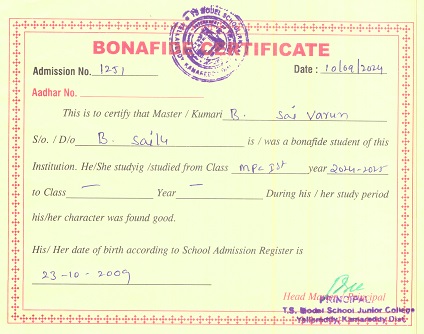 BONAFIDE CERTIFICATE
Admission No. 1251 Date : 10/09/2024
Aadhar No.
This is to certify that Master / Kumari B. Sai Varun
S/o. / D/o B. Sailu is / was a bonafide student of this
Institution. He/She studyig /studied from Class MPC Ist year 2024-2025
to Class — Year — During his / her study period
his/her character was found good.
His/ Her date of birth according to School Admission Register is
23-10-2009
Head Master / Principal
PRINCIPAL
T.S. Model School Junior College
Yellareddy, Kamareddy Dist.